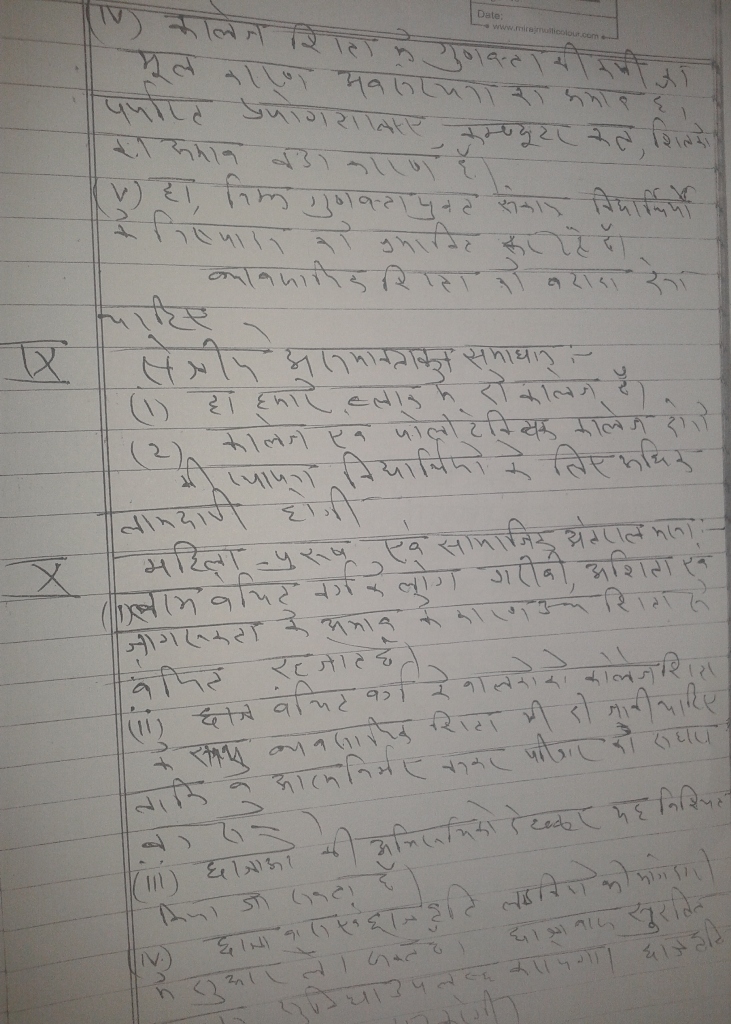 Date:
www.mirajmulticolour.com
(IV) कालेज शिक्षा के गुणवत्ता की कमी का
मूल कारण अवस्थापना का अभाव है।
पर्याप्त प्रयोगशालाए कम्प्यूटर कक्ष, शिक्षको
का अभाव बडा कारण है।
(V) हा, निम्न गुणवत्तायुक्त संकाय विद्यार्थियों
के निष्पादन को प्रभावित कर रहे हैं।
व्यावसायिक शिक्षा को बढावा देना
चाहिए
IX
क्षेत्रीय असमानतायुक्त समाधान :-
(1) हा हमारे ब्लाक मे दो कालेज हैं।
(2) कालेज एवं पोलोटेक्निक कालेज दोनो
की स्थापना विद्यार्थियो के लिए अधिक
लाभदायी होगी
X
महिला - पुरुष एवं सामाजिक अंतराल :-
(i) लाभ वंचित वर्ग के लोग गरीबी, अशिक्षा एवं
जागरूकता के अभाव के कारण उच्च शिक्षा से
वंचित रह जाते हैं।
(ii) छात्र वंचित वर्ग के बालको को कालेज शिक्षा
के साथ व्यावसायिक शिक्षा भी दी जानी चाहिए
ताकि वे आत्मनिर्भर बनकर परिवार को
(iii) छात्राओ की अभिरूचियो देखकर यह निश्चित
किया जा सकता है
(iv) छात्रावास छात्र हेतु लडकियो की
के है। छात्रावास सुरक्षित
सुविधा उपलब्ध छात्र हेतु